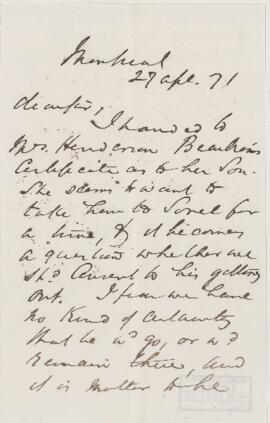 Montreal
27 apl. 71
dear Sir,
I handed to
Mrs. Henderson
Certificate as to her Son.
She seems to want to
take him to Sorel for
a time, & it becomes
a question whether we
shd. Consent to his getting
out. I fear we have
no Kind of certainty
that he wd. go, or wd.
remain there, and
it is matter to be